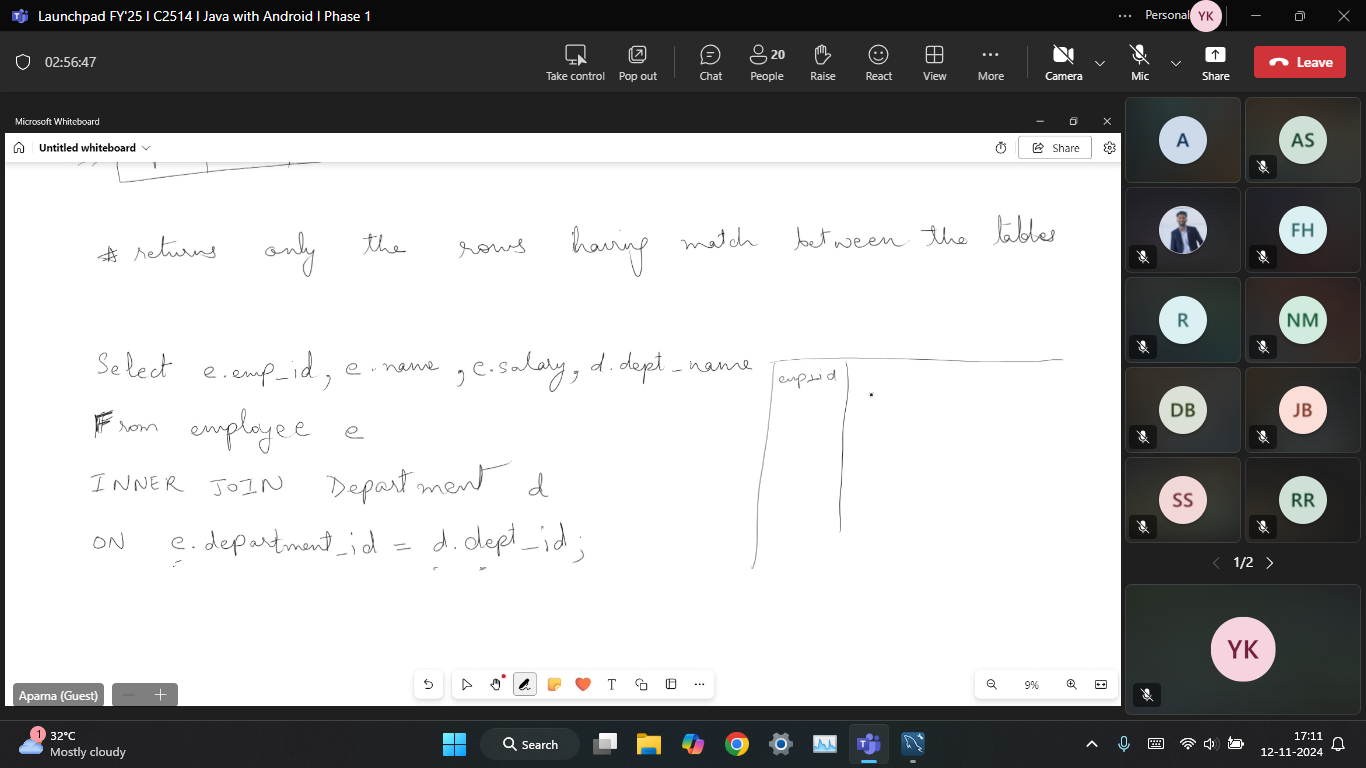 Launchpad FY'25 | C2514 | Java with Android | Phase 1
Personal
YK
02:56:47
Take control
Pop out
Chat
20
People
Raise
React
View
More
Camera
Mic
Share
Leave
Microsoft Whiteboard
Untitled whiteboard
Share
* returns only the rows having match between the tables
Select e.emp_id, e.name, e.salary, d.dept_name
From employee e
INNER JOIN Department d
ON e.department_id = d.dept_id;
Aparna (Guest)
9%
A
AS
FH
R
NM
DB
JB
SS
RR
1/2
YK
1
32°C
Mostly cloudy
Search
17:11
12-11-2024